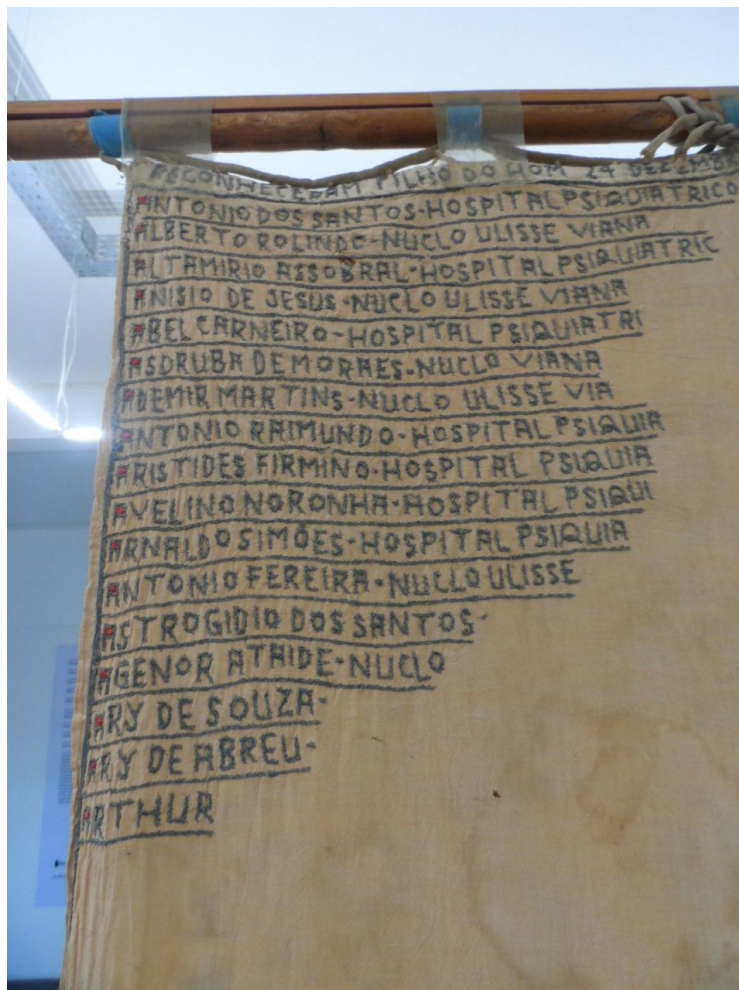 RECONHECERAM FILHO DO HOM 24 DEZEMBR
ANTONIO DOS SANTOS-HOSPITAL PSIQUIATRICO
ALBERTO ROLINDO-NUCLO ULISSE VIANA
ALTAMIRIO ASSOBRAL-HOSPITAL PSIQUIATRIC
ANISIO DE JESUS-NUCLO ULISSE VIANA
ABEL CARNEIRO-HOSPITAL PSIQUIATRI
ASDRUBA DE MORAES-NUCLO VIANA
ADEMIR MARTINS-NUCLO ULISSE VIA
ANTONIO RAIMUNDO-HOSPITAL PSIQUIA
ARISTIDES FIRMINO-HOSPITAL PSIQUIA
AVELINO NORONHA-HOSPITAL PSIQUI
ARNALDO SIMÕES-HOSPITAL PSIQUIA
ANTONIO FEREIRA-NUCLO ULISSE
ASTROGIDIO DOS SANTOS-
AGENOR ATAIDE-NUCLO
ARY DE SOUZA-
ARY DE ABREU-
ARTHUR